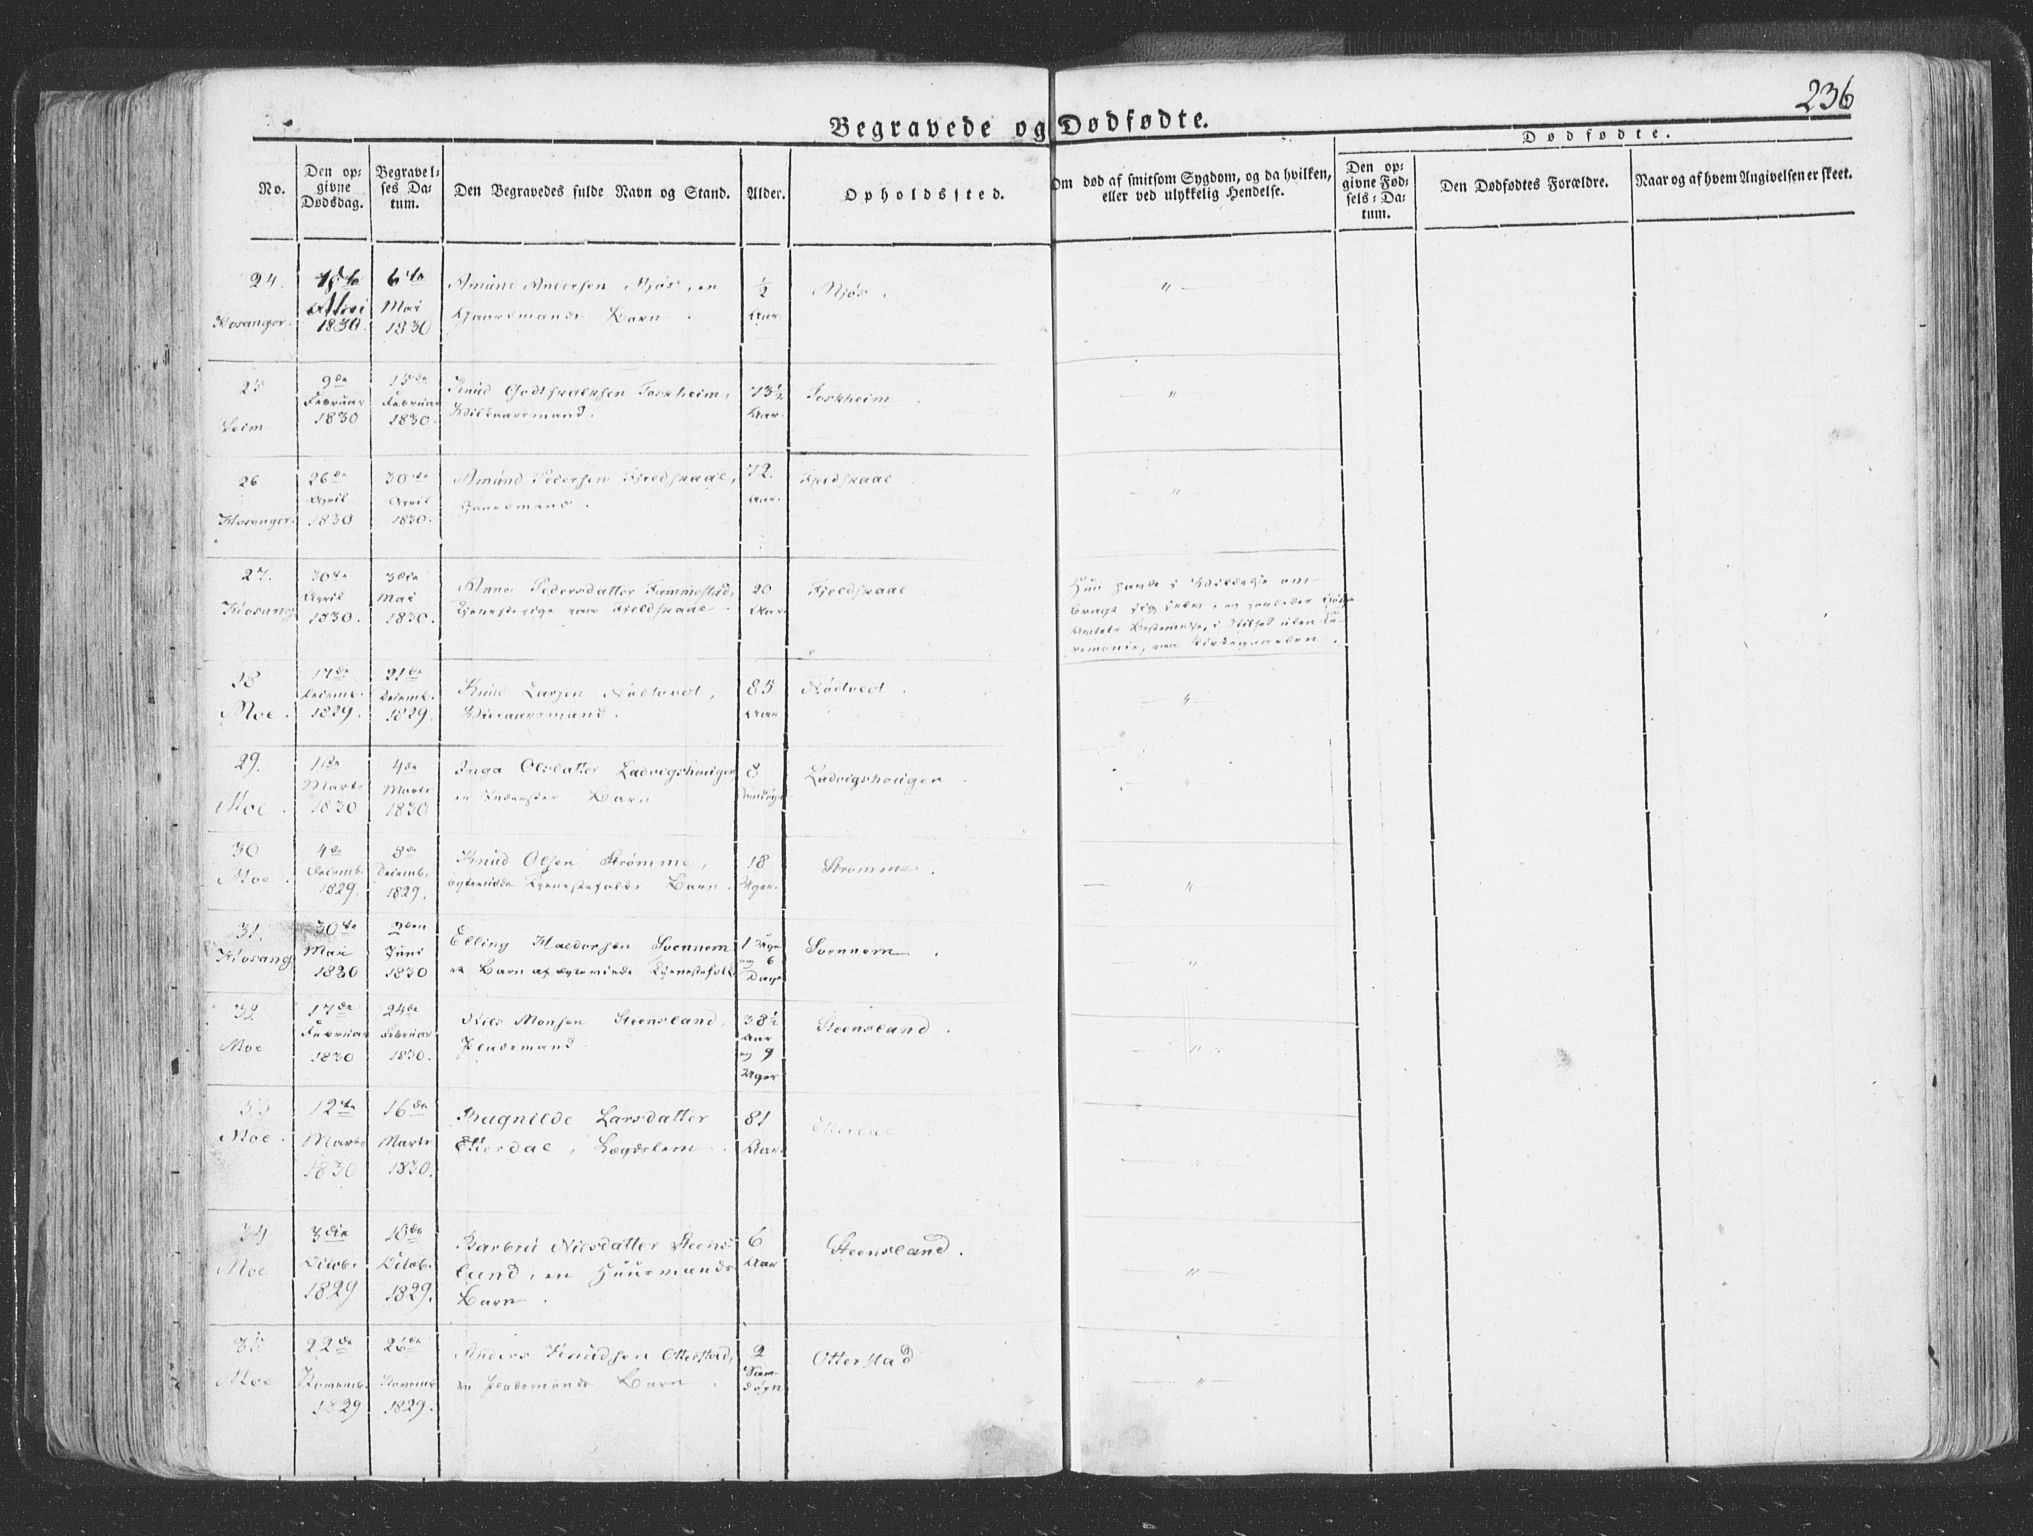 236
Begravede og Dødfødte.
Dødfødte.
No.
Den op-
givne
Dødsdag.
Begravel-
ses Da-
tum.
Den Begravedes fulde Navn og Stand.
Alder.
Opholdssted.
Om død af smitsom Sygdom, og da hvilken,
eller ved ulykkelig Hendelse.
Den op-
givne Fød-
sels-Da-
tum.
Den Dødfødtes Forældre.
Naar og af hvem Angivelsen er skeet.
24.
Hosanger.
Mai
1830.
6te
Mai
1830
Amund Andersen Mjøs, en
Gaardmands Barn.
½
Aar
Mjøs.
"
25
Seim
9de
Februar
1830
15de
Februar
1830.
Knud Godtskalksen Forkheim,
Kildaarsmand.
73½
Aar.
Forkheim.
"
26
Hosanger.
26de
April
1830
30te
April
1830.
Amund Pedersen Fjeldskaal,
Gaardmand.
72.
Aar.
Fjeldskaal
"
27.
Hosang
30te
April
1830.
3die
Mai
1830.
Anne Pedersdatter
Tjenestepige paa Fjeldskaal.
20
Aar
Fjeldskaal
Hun havde i Vildelse om-
bragt sig selv, og jordedes
Amtets Bestemmelse, i Stilhed uden Ce-
remonie, paa Kirkegaarden.
28
Moe.
17de
Decemb.
1829.
21de
Decemb.
1829.
Knud Larsen Nødtvedt,
85
Aar
Nødtvedt.
"
29.
Moe.
Marts
1830
4de
Marts
1830
Inga Olsdatter Ladvigshougen
en Inderstes Barn
8
Samdøgn
Ladvigshougen.
"
30
Moe.
4de
Decemb.
1829.
8de
Decemb.
1829.
Knud Olsen Strømme,
ægteviede Tjenestefolks Barn.
18
Uger.
Strømme.
"
31.
Hosang
30te
Mai
1830
2den
Juni
1830
Elling Haldorsen Soennem
et Barn af ægteviede Tjenestefolk
1 Uge
og 6
Dage
Soennem.
"
32
Moe
17de
Februar
1830
24de
Februar
1830.
Nils Monsen Steensland,
Pladsmand.
38½
Aar
og 9
Uger
Steensland.
"
33
Moe.
12te
Marts
1830
16de
Marts
1830.
Rugnilde Larsdatter
Eikerdal, Lægdslem.
81
Aar.
"
34
Moe
3die
Octob.
1829
10de
Octob.
1829.
Barbru Nilsdatter Steens-
land, en Huusmands
Barn.
6
Aar
Steensland.
"
35
Moe
22de
Novemb.
1829
26de
Novemb.
1829.
Anders Knudsen Otterstad,
en Pladsmands Barn.
2
Sam-
døgn
Otterstad
"